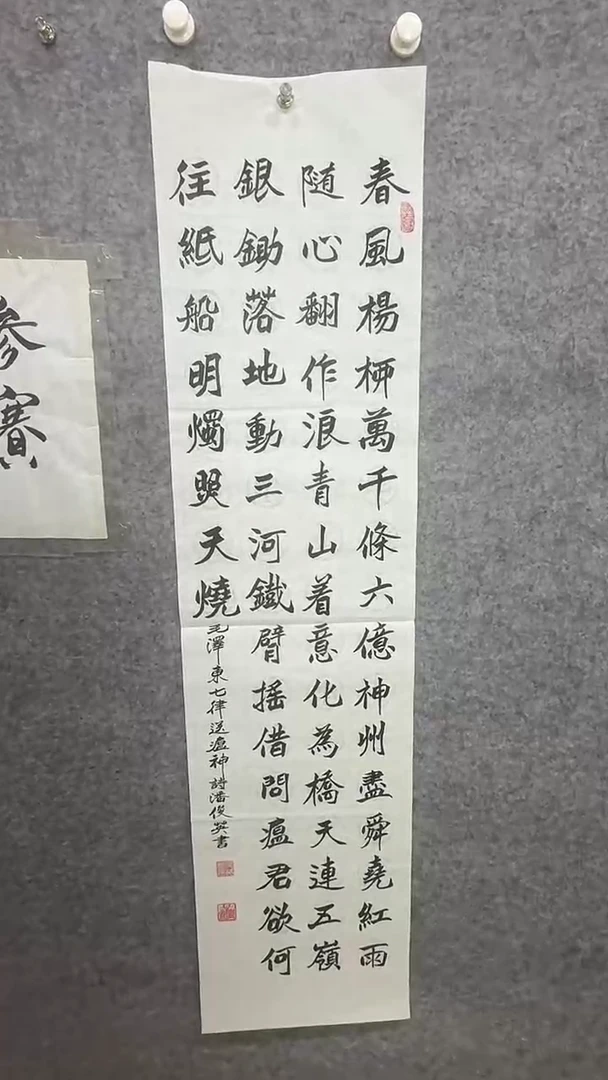 春風楊柳萬千條六億神州盡舜堯紅雨
随心翻作浪青山着意化為橋天連五嶺
銀鋤落地動三河鐵臂摇借問瘟君欲何
往紙船明燭照天燒
毛澤東七律送瘟神詩潘俊英書
參賽